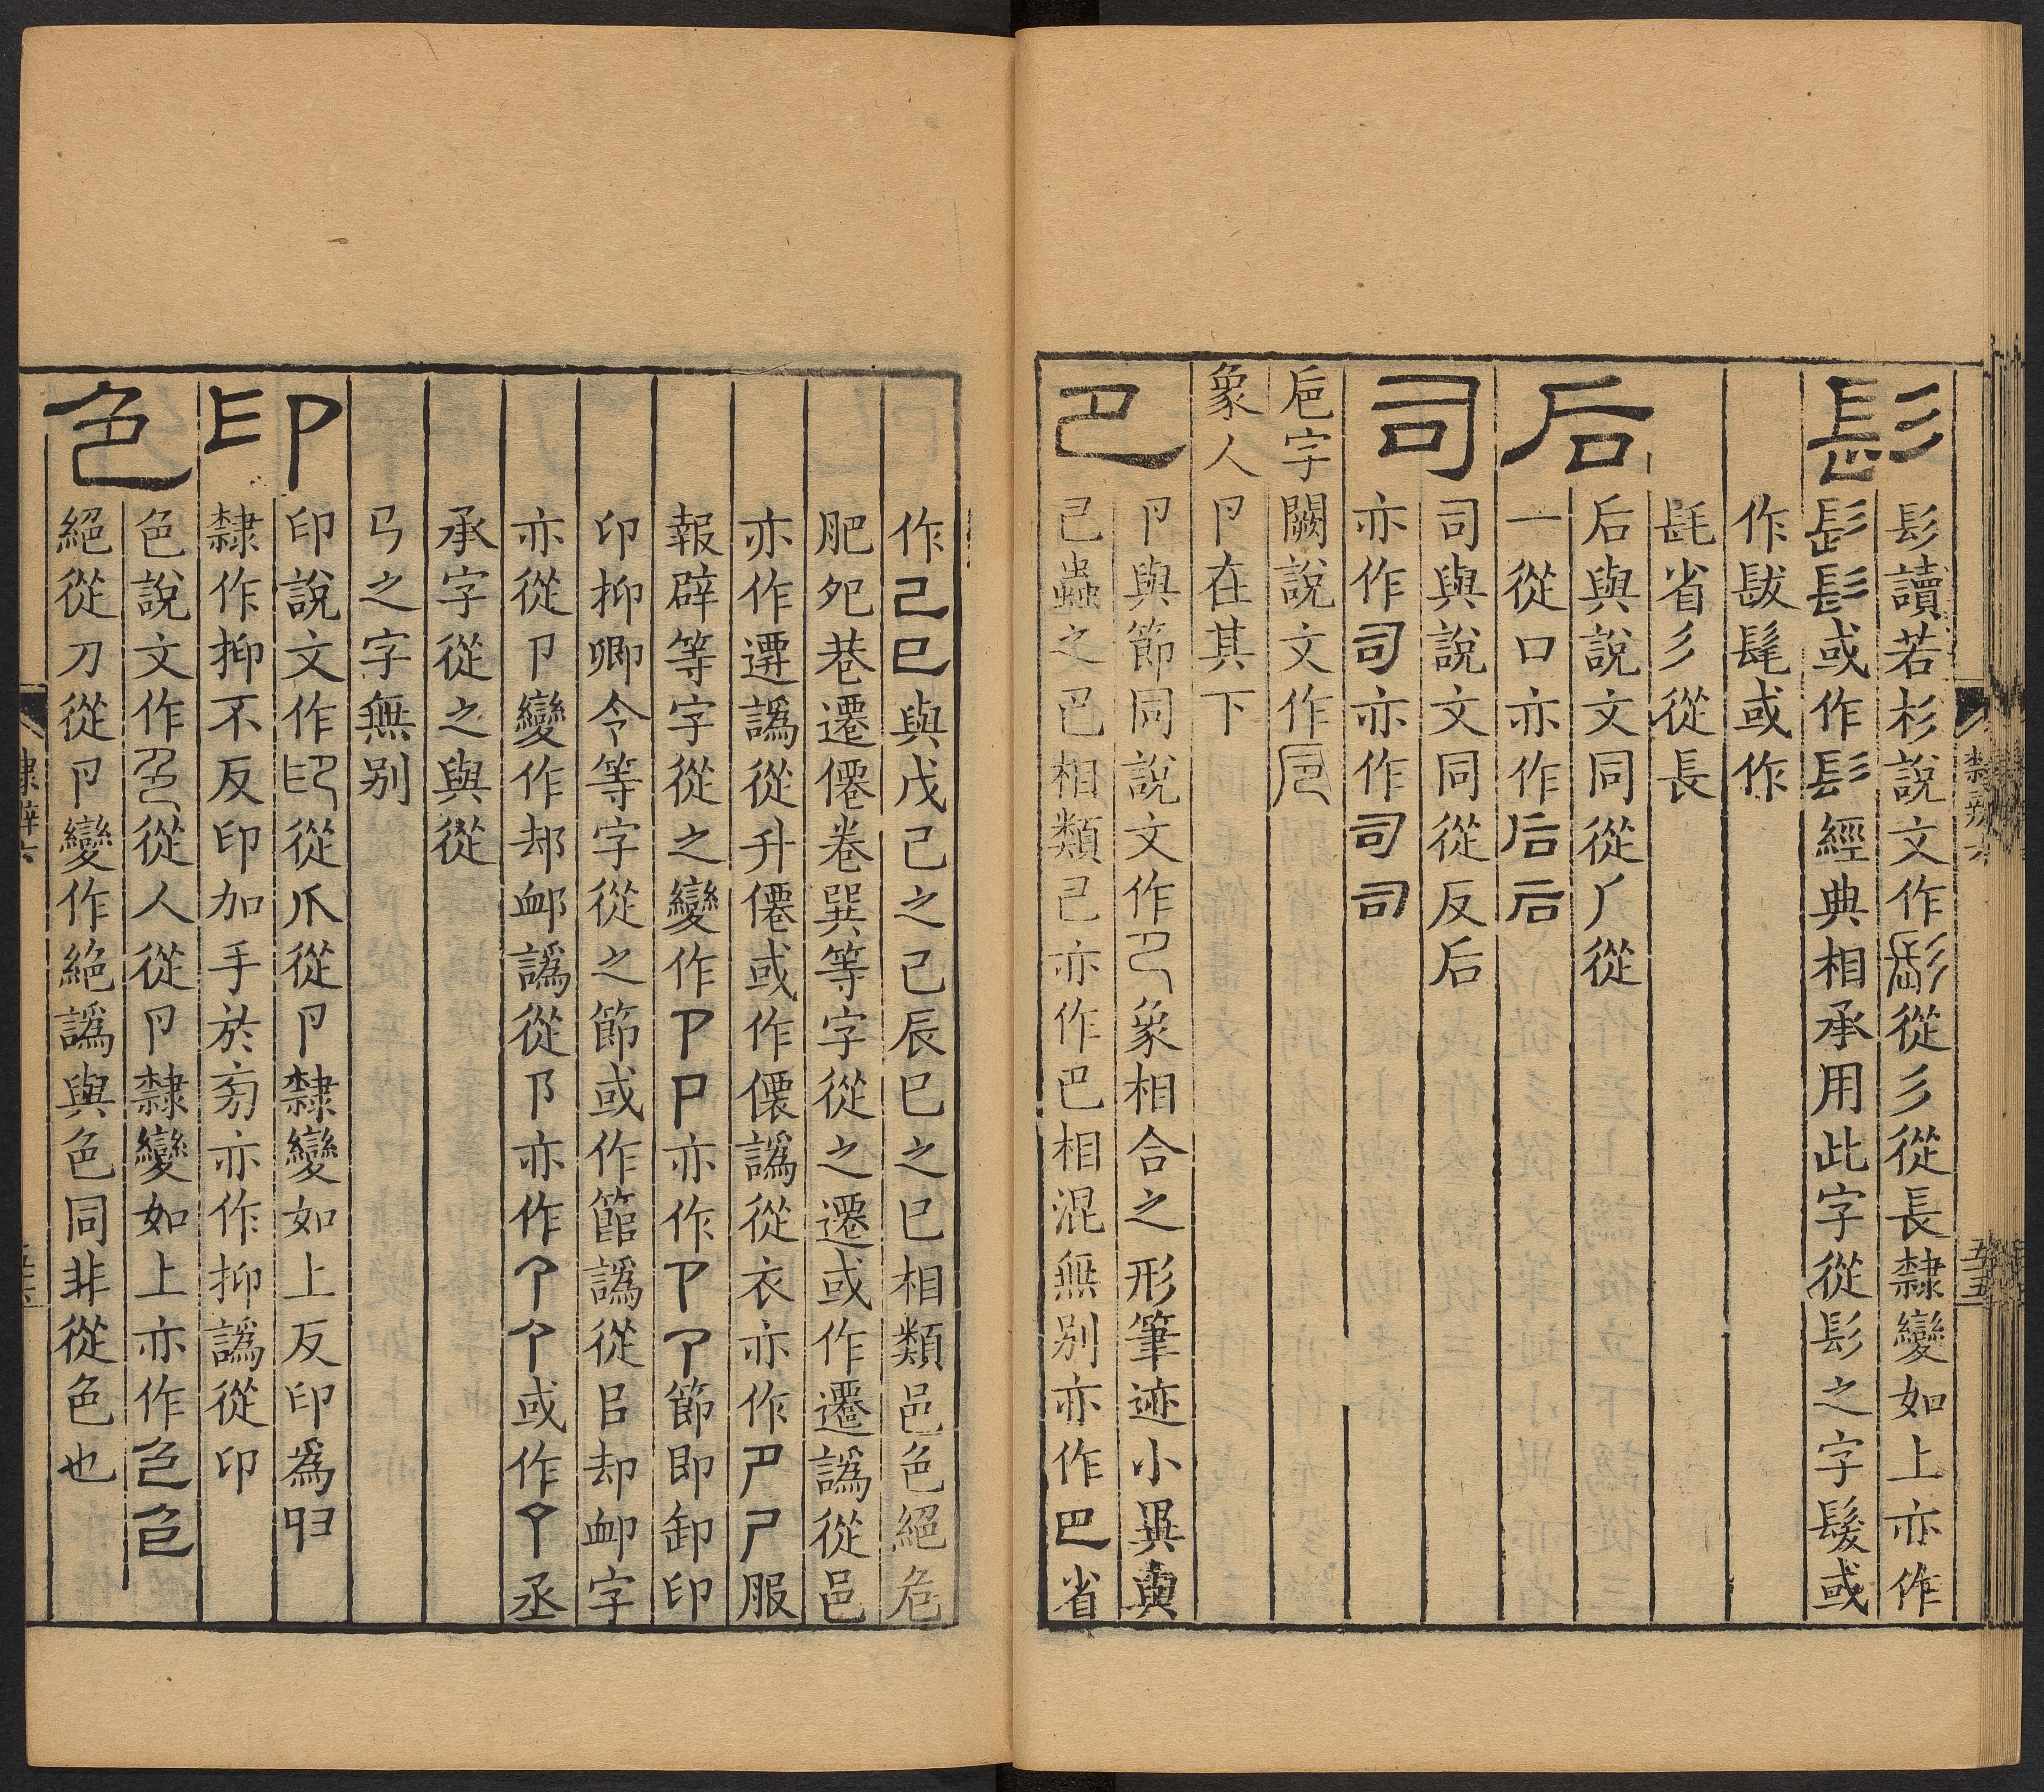 髟
髟讀若杉說文作髟從彡從長隸變如上亦作
髟髟或作髟經典相承用此字從髟之字髮或
作髮髦或作
髦省彡從長
后
后與說文同從𠂆從
一從口亦作后后
司
司與說文同從反后
亦作司亦作司司
巵字闕說文作巵
象人卪在其下
㔾
卪與節同說文作㔾象相合之形筆迹小異與
己蟲之巴相類己亦作巴相混無別亦作巴省
作己巳與戊己之己辰巳之巳相類邑色絕危
肥夗巷遷僊卷巽等字從之遷或作遷譌從邑
亦作遷譌從升僊或作儇譌從衣亦作尸服
報辟等字從之變作卩卩亦作卩卩節即卸印
卬抑卿令等字從之節或作節譌從㠯却卹字
亦從卪變作却卹譌從阝亦作卩卩或作丞
承字從之與從
弓之字無別
印
印說文作印從爪從卪隸變如上反印爲𠨍
隸作抑不反印加手於旁亦作抑譌從印
色
色說文作色從人從卪隸變如上亦作色色
絕從刀從卪變作絕譌與色同非從色也
隸辨六
五十五